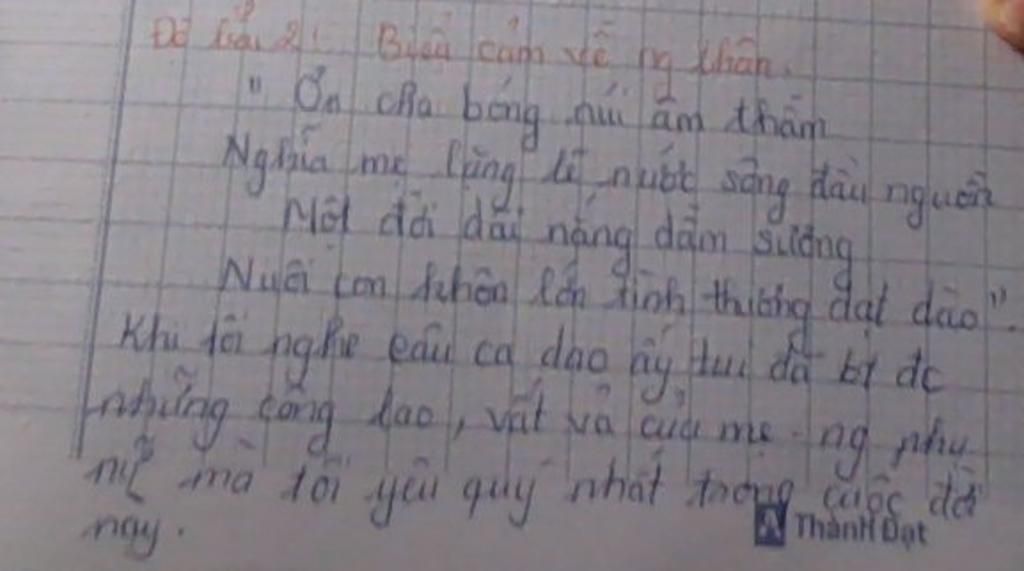 Đề bài 2: Biểu cảm về ng thân.
" Ơn cha bóng núi âm thầm
Nghĩa mẹ lặng lẽ nước sông đầu nguồn
Một đời dãi nắng dầm sương
Nuôi con khôn lớn tình thương dạt dào".
Khi tôi nghe câu ca dao ấy, tui đã bt đc
những công lao, vất vả của mẹ - ng phụ
nữ mà tôi yêu quý nhất trong cuộc đời
này.
Thành Đạt